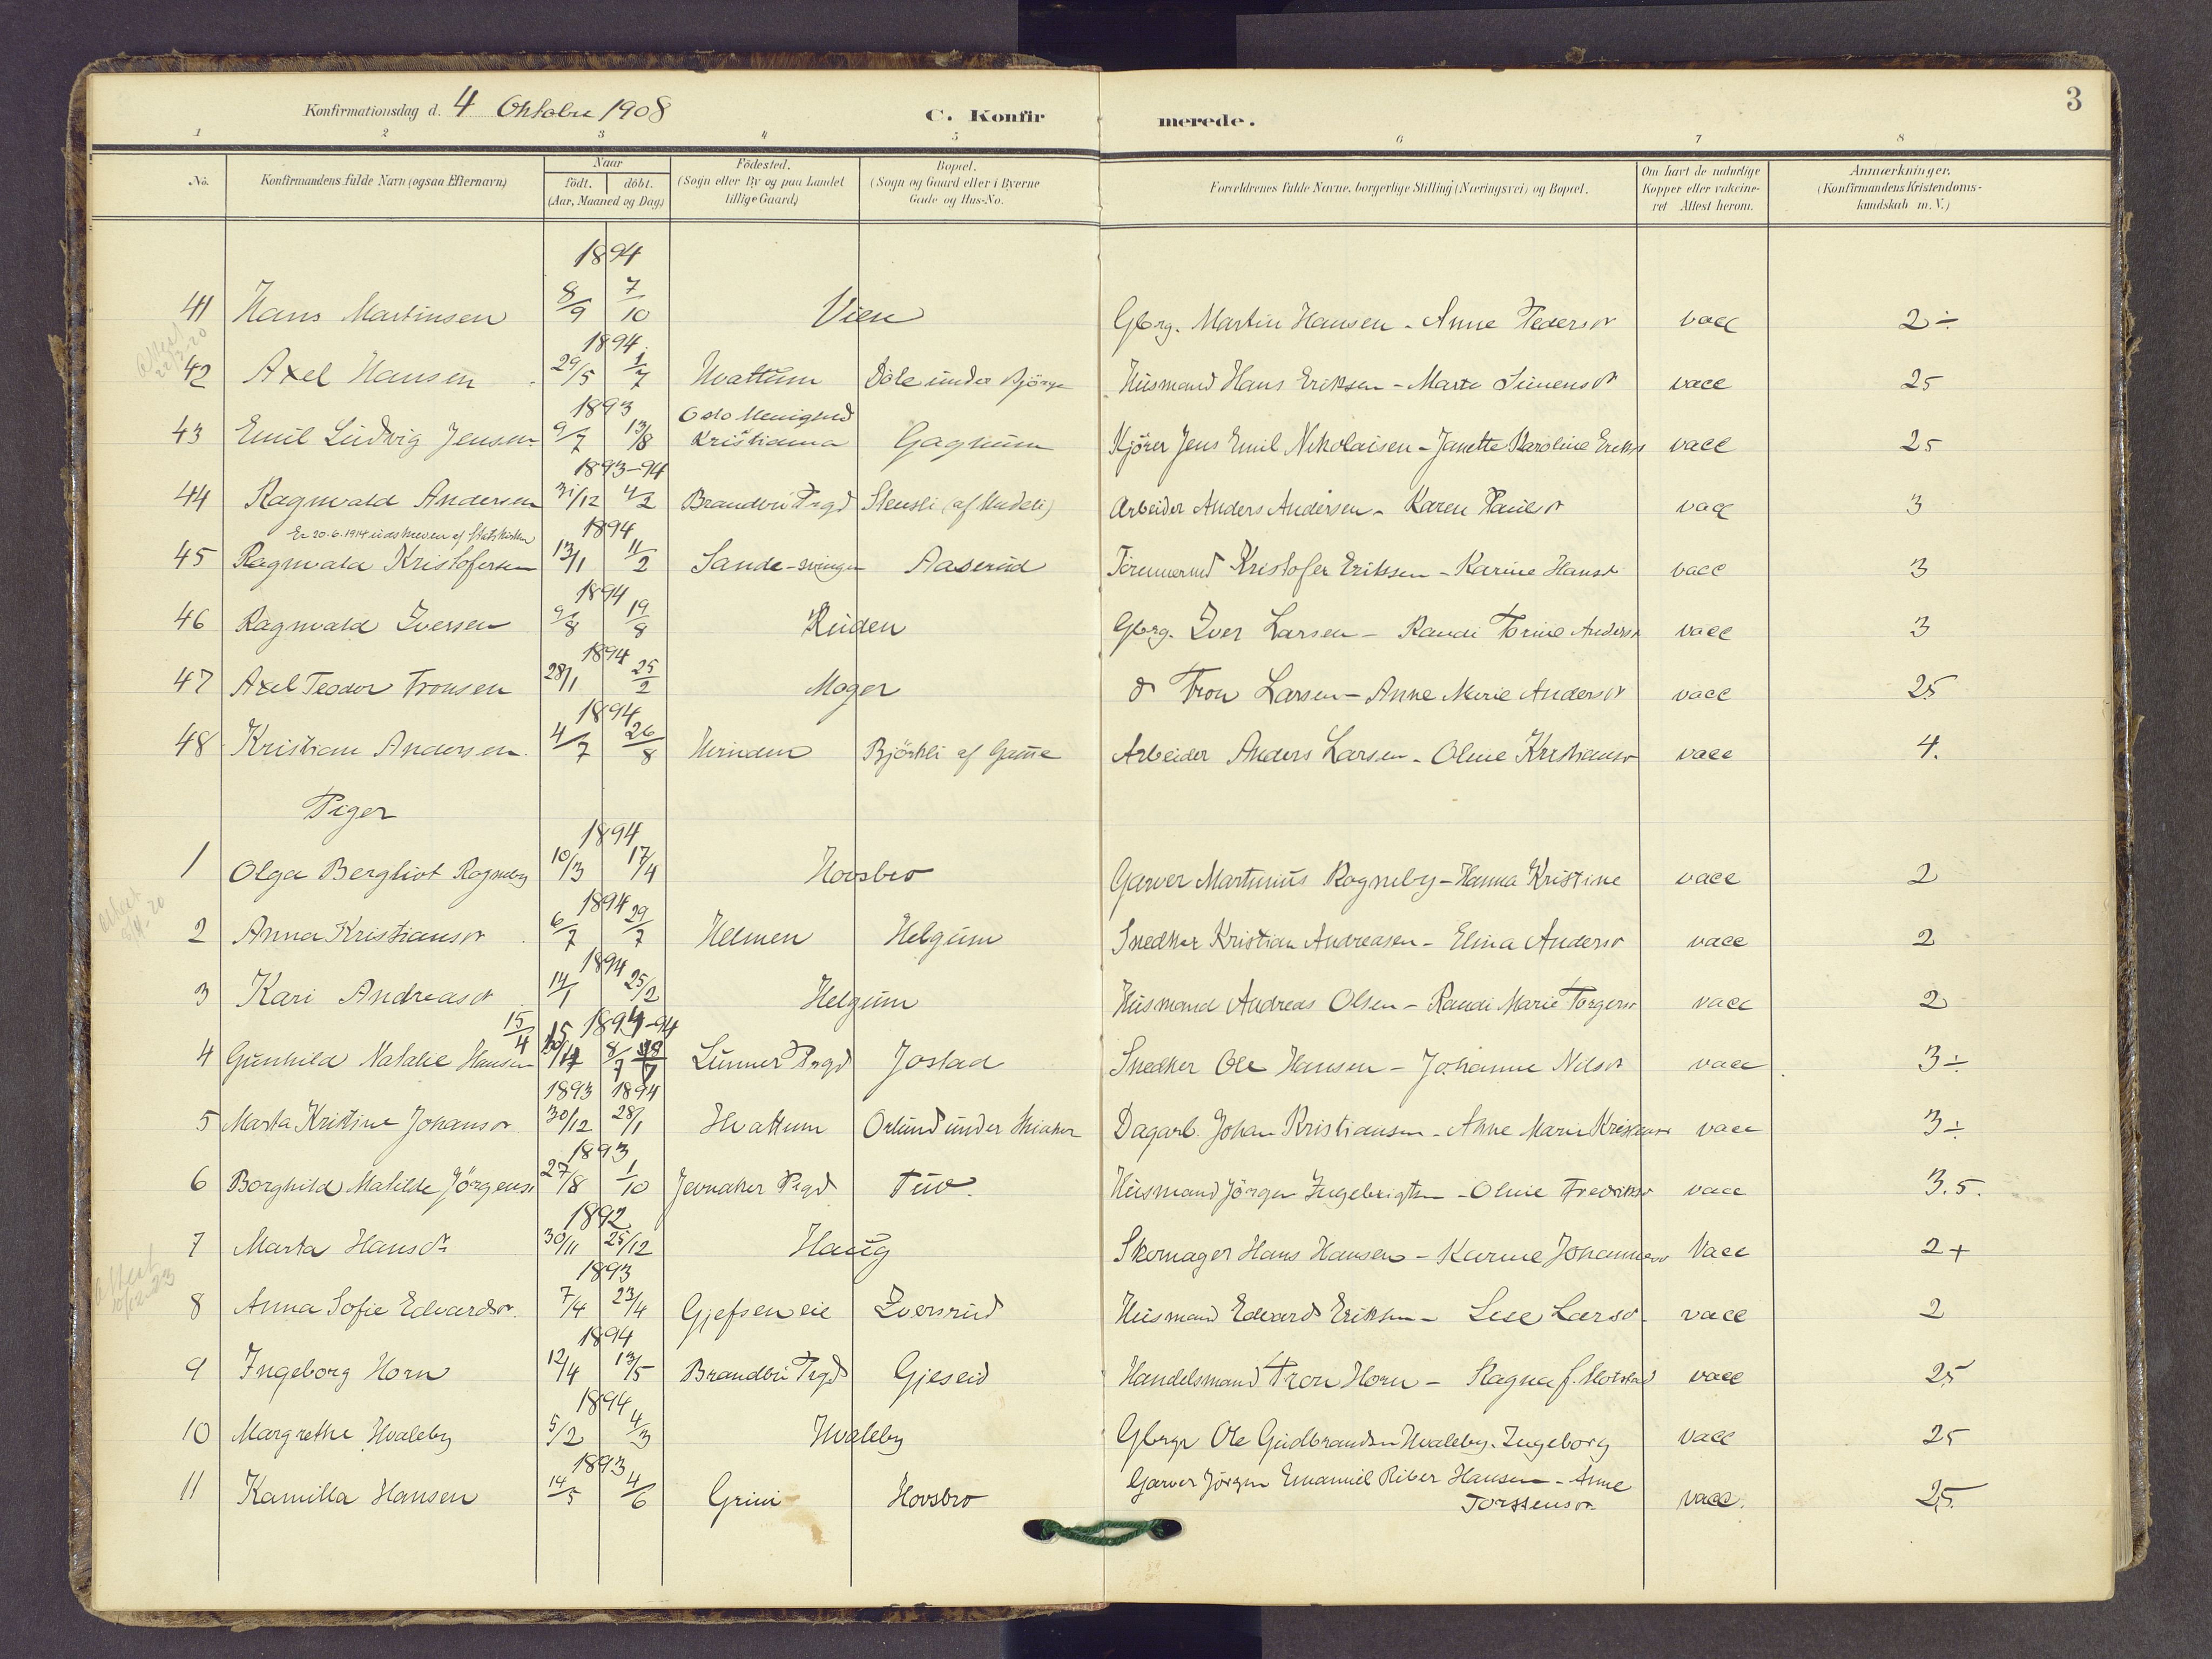 3
Konfirmationsdag d. 4 Oktober 1908 C. Konfirmerede.
1 2 3 4 5 6 7 8
No. Konfirmandens fulde Navn (ogsaa Efternavn) Naar födt. döbt. (Aar, Maaned og Dag) Födested. (Sogn eller By og paa Landet tillige Gaard) Bopæl. (Sogn og Gaard eller i Byerne Gade og Hus-No. Forældrenes fulde Navne, borgerlige Stilling (Næringsvei) og Bopæl. Om havt de naturlige Kopper eller vakcineret Attest herom. Anmærkninger. (Konfirmandens Kristendomskundskab m. V.)
1894
41 Hans Martinsen 8/9 7/10 Vien Gbrg. Martin Hansen - Anne Pedersdt vacc 2÷
Attest
1894
42 Axel Hansen 29/5 1/7 Hvattum Döle under Björge Husmand Hans Eriksen - Marte dt vacc 25
1893 Oslo Menighed
43 Emil Ludvig Jensen 9/7 13/8 Kristiania Gagnum Kjörer Jens Emil Nikolaisen - Janette Karoline Eriksd vacc 25
1893-94
44 Ragnvald Andersen 31/12 4/2 Brandbu Prgd Stensli (af ) Arbeider Anders Andersen - Karen dt vacc 3
Er 20.6.1914 udmeldt af Statskirken 1894
45 Ragnvald Kristofersen 13/1 11/2 Sande-svingen Aaserud Tömmermd Kristofer Eriksen - Karine Hansd vacc 3
1894
46 Ragnvald Iversen 9/8 19/8 Ruden Gbrg. Iver Larsen - Randi Torine Andersd vacc 3
1894
47 Axel Teodor Tronsen 28/1 25/2 Moger do Tron Larsen - Anne Marie Andersdt vacc 25
1894
48 Kristian Andersen 4/7 26/8 Björkli af Arbeider Anders Larsen - Oline Kristiansdt vacc 4.
Piger
1894
1 Olga Bergliot Rogneby 10/3 17/4 Hovsbro Garver Martinius Rogneby - Hanna Kristine vacc 2
Attest
1894
2 Anna Kristiansdt 6/7 29/7 Helmen Helgum Snedker Kristian Andreasen - Elina Andersdt vacc 2
1894
3 Kari Andreasdt 14/1 25/2 Helgum Husmand Andreas Olsen - Randi Marie Torgersdt vacc 2
15/4 1894-94
4 Gunhild Natalie Hansen 15 8/7 Lunner Prgd Jostad Snedker Ole Hansen - Johanne Nilsdt vacc 3÷
1893 1894
5 Marta Kristine Johansdt 30/12 28/1 Hvattum Orlund under Skiaker Dagarb. Johan Kristiansen - Anne Marie Kristiansd vacc 3÷
1893
6 Borghild Matilde Jörgensd 27/8 1/10 Jevnaker Prgd Tuv Husmand Jörgen Ingebrigtsen - Oline Fredriksd vacc 3.5.
1892
7 Marta Hansdtr 30/11 25/12 Haug Skomager Hans Hansen - Karine Johannesd Vacc 2+
1893
Attest
8 Anna Sofie Edvardsdt. 7/4 23/4 Gjefsen eie Iversrud Husmand Edvard Eriksen - Lise Larsd. vacc 2
1894
9 Ingeborg Horn 12/4 13/5 Brandbu Prgd Gjeseid Handelsmand Tron Horn - Ragna f. vacc 25
1894
10 Margrethe Hvaleby 5/2 4/3 Hvaleby Gbrgr Ole Gudbrandsen Hvaleby - Ingeborg vacc 25
1893
11 Kamilla Hansen 14/5 4/6 Grini Hovsbro Garver Jörgen Emanuel Riber Hansen - Anne
Torstensdt. vacc. 2,5.